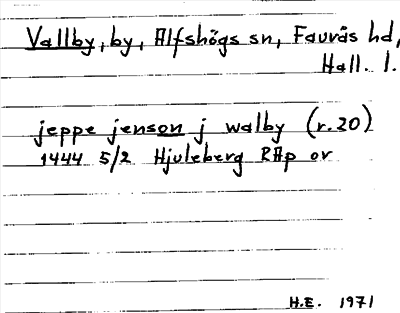 Vallby, by, Alfshögs sn, Faurås hd,
Hall. l.
jeppe jenson j walby (r.20)
1444 5/2 Hjuleberg RAp or
H.E. 1971